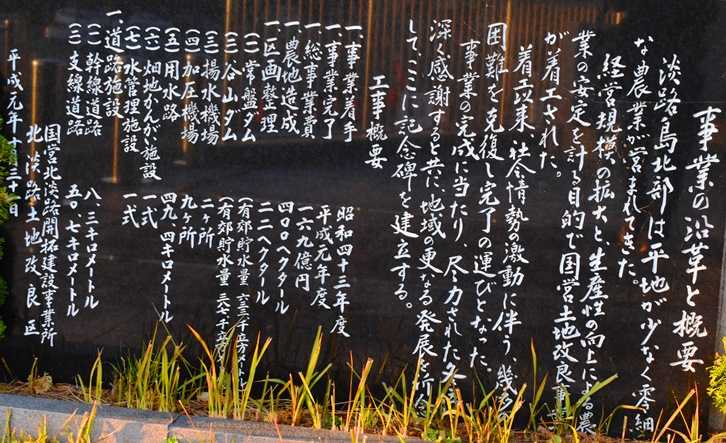 事業の沿革と概要
淡路島北部は平地が少なく零細
な農業が営まれてきた。
経営規模の拡大と生産性の向上による農
業の安定を計る目的で国営土地改良事業
が着工された。
着工以来、社会情勢の激動に伴う、幾多の
困難を克服し完了の運びとなった、
事業の完成に当たり尽力された
深く感謝すると共に、地域の更なる発展を祈念
してここに記念碑を建立する。
工事概要
一、事業着手 昭和四十三年度
一、事業完了 平成元年度
一、総事業費 一六九億円
一、農地造成 四〇〇ヘクタール
一、区画整理 二二ヘクタール
(一)常盤ダム (有効貯水量 六三千立方メートル
(二)谷山ダム (有効貯水量 三六七千立方
(三)揚水機場 二ヶ所
(四)加圧機場 九ヶ所
(五)用水路 四九.四キロメートル
(六)畑地かんがい施設 一式
(七)水管理施設 一式
一、道路施設
(一)幹線道路 八.三キロメートル
(二)支線道路 五〇.七キロメートル
国営北淡路開拓建設事業所
北淡路土地改良区
平成元年十月三十一日